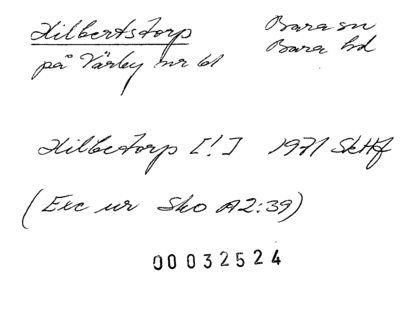 Hilbertstorp Bara sn
på Värby nr 61 Bara hd
Hilbetorp [!] 1971 SkHf
(Exc ur Sko A2:39)
00032524